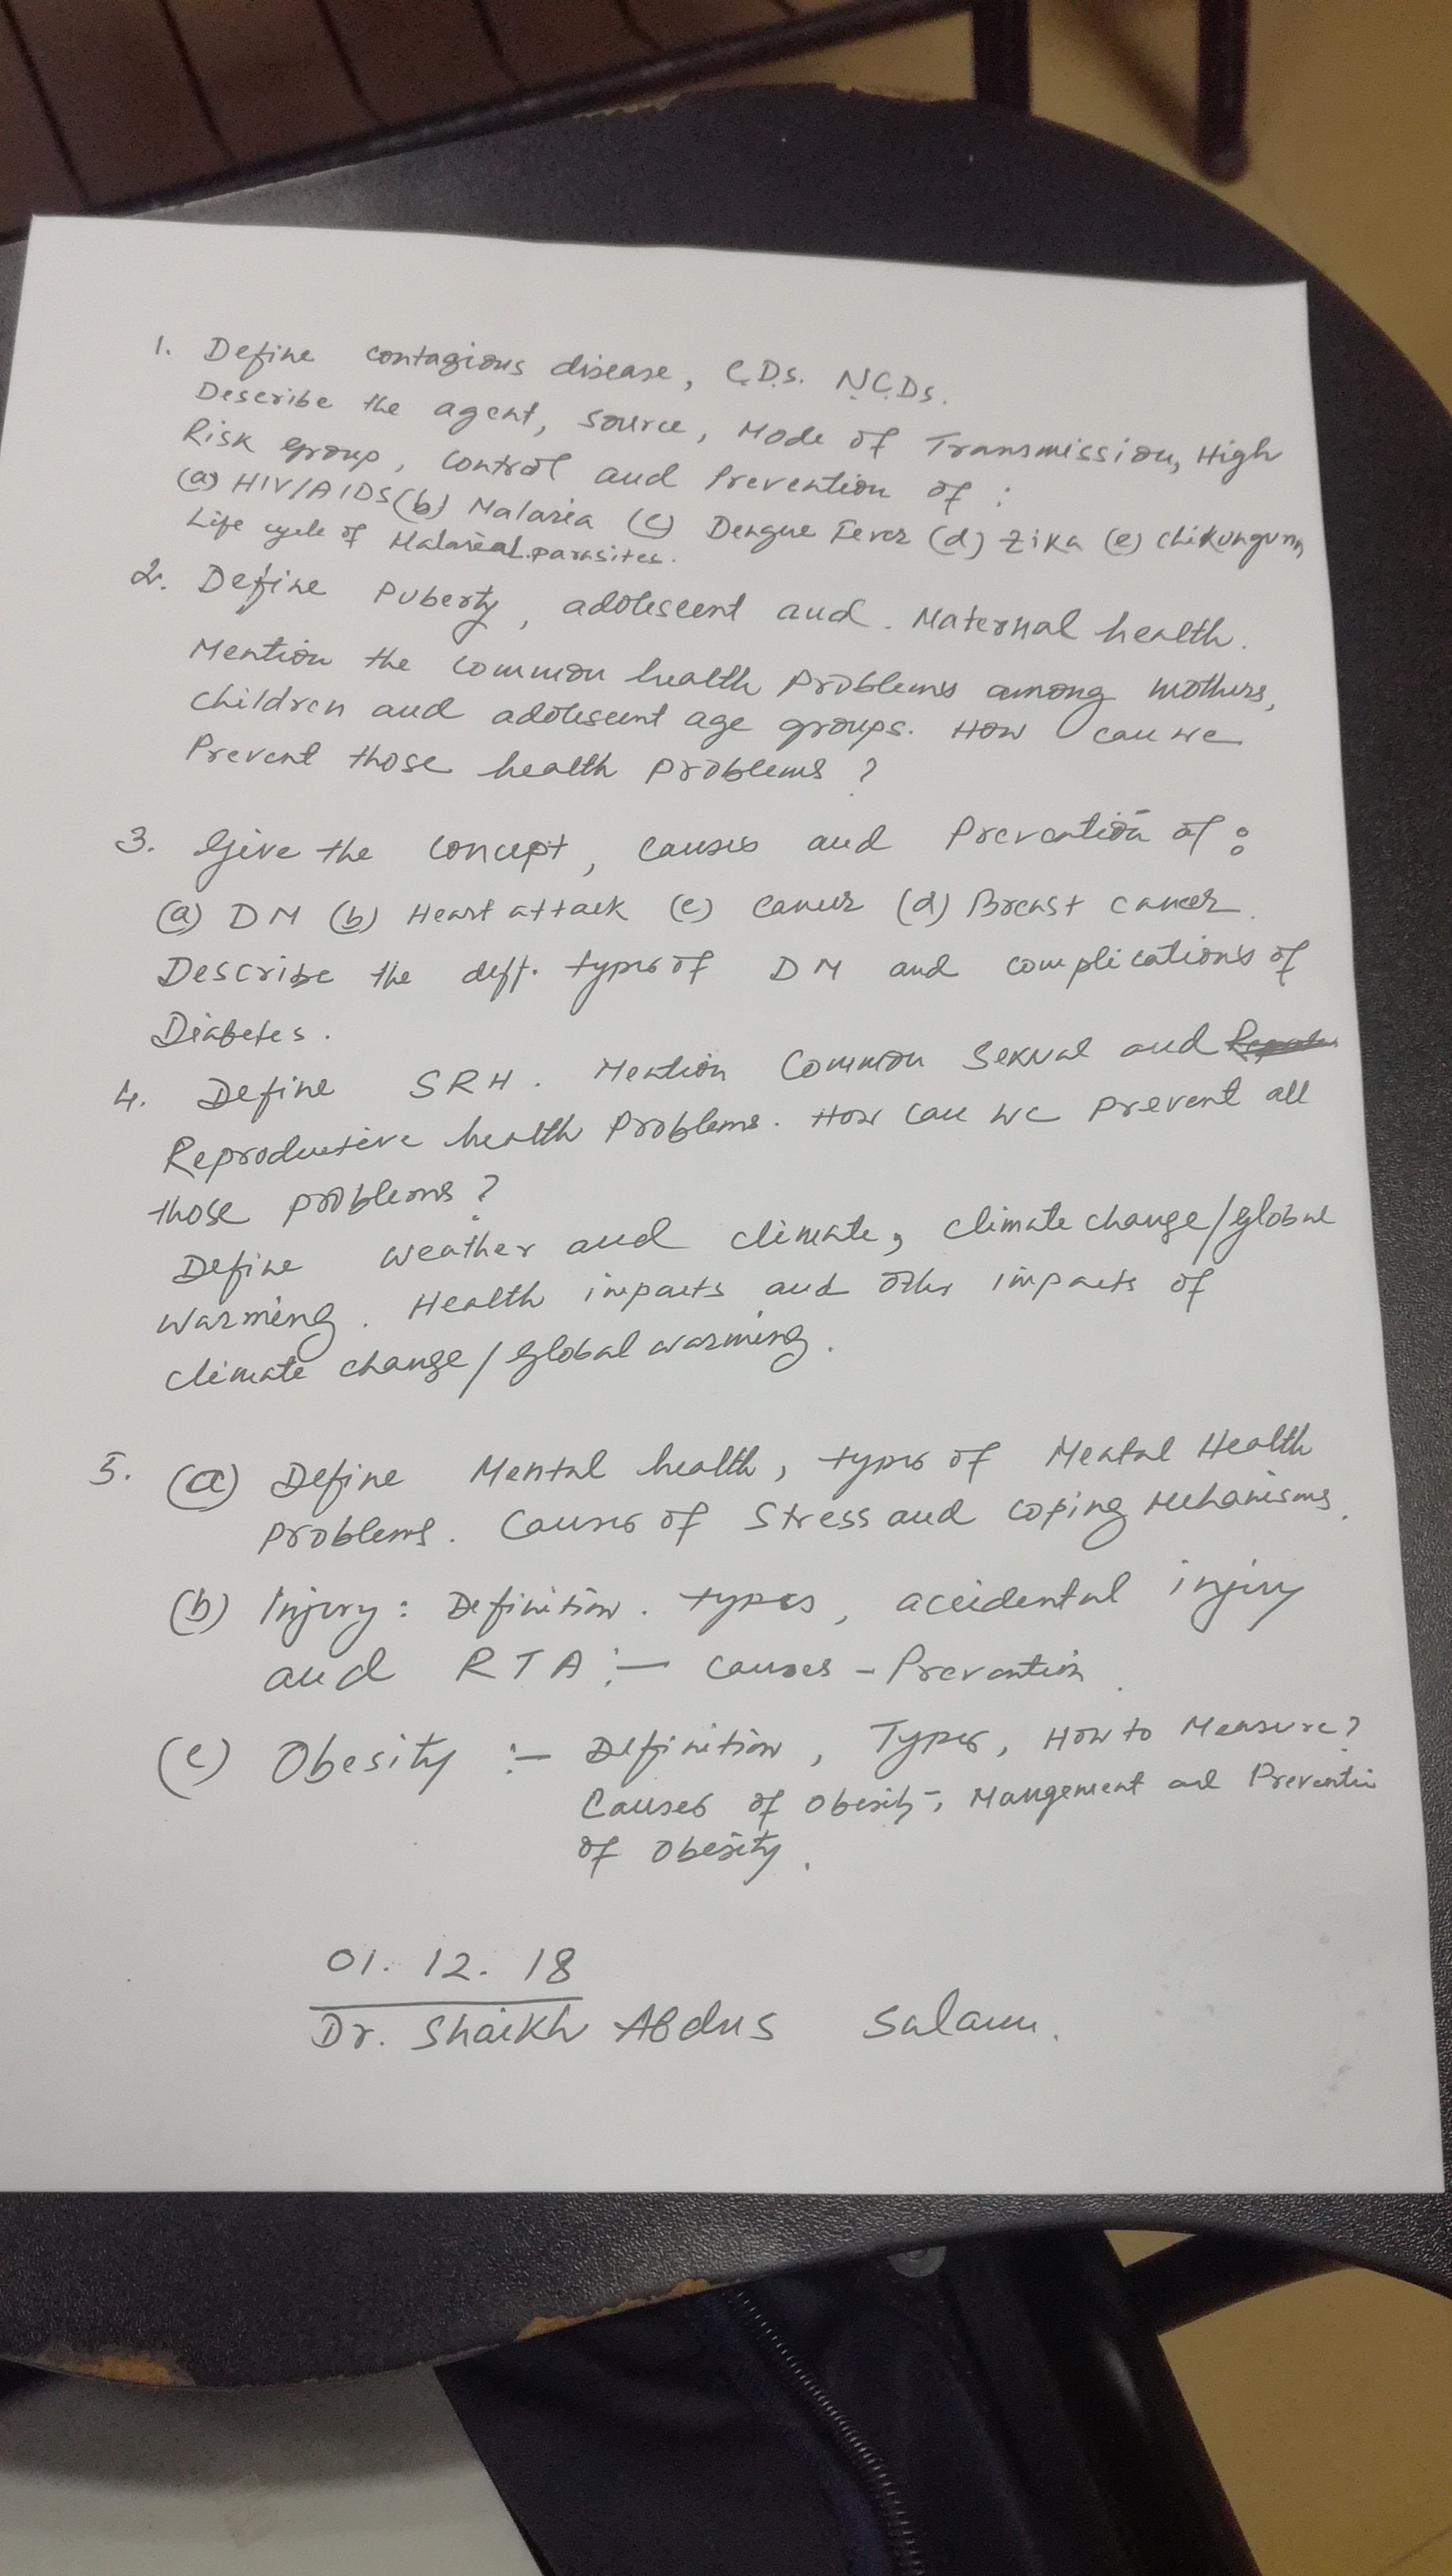 1. Define contagious disease, C.D.s. N.C.Ds.
Describe the agent, source, Mode of Transmission, High
Risk group, Control and Prevention of :
(a) HIV/AIDS (b) Malaria (c) Dengue Fever (d) Zika (e) Chikunguna
Life cycle of Malareal parasites.
2. Define Puberty, adolescent and Maternal health.
Mention the common health problems among mothers,
children and adolescent age groups. How can we
Prevent those health problems ?
3. Give the concept, causes and Prevention of :
(a) DM (b) Heart attack (c) cancer (d) Breast cancer.
Describe the diff. types of DM and complications of
Diabetes.
4. Define SRH. Mention Common Sexual and
Reproductive health Problems. How can we prevent all
those problems ?
Define weather and climate, climate change/global
warming. Health impacts and other impacts of
climate change/global warming.
5. (a) Define Mental health, types of Mental Health
problems. Causes of Stress and coping Mehanisms.
(b) Injury : Definition. types, accidental injury
and RTA :- causes - Prevention.
(c) Obesity :- Definition, Types, How to Measure?
Causes of Obesity, Mangement and Prevention
of Obesity.
01. 12. 18
Dr. Shaikh Abdus Salam.